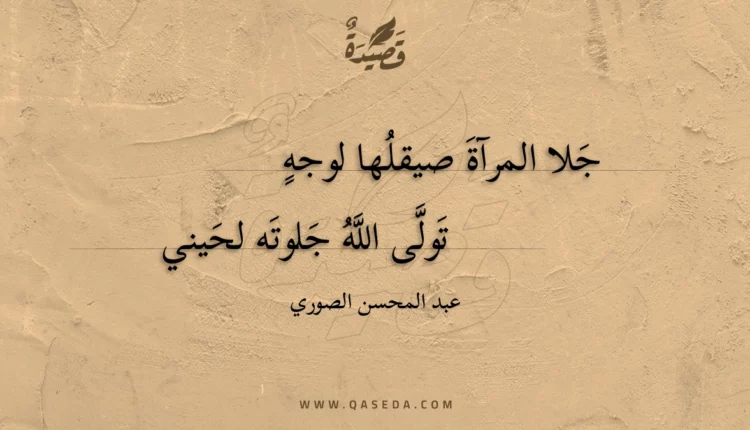 قَصِيْدَةٌ
جَلا المرآةَ صيقلُها لوجهٍ
تَولَّى اللَّهُ جَلوتَه لحَيني
عبد المحسن الصوري
WWW.QASEDA.COM